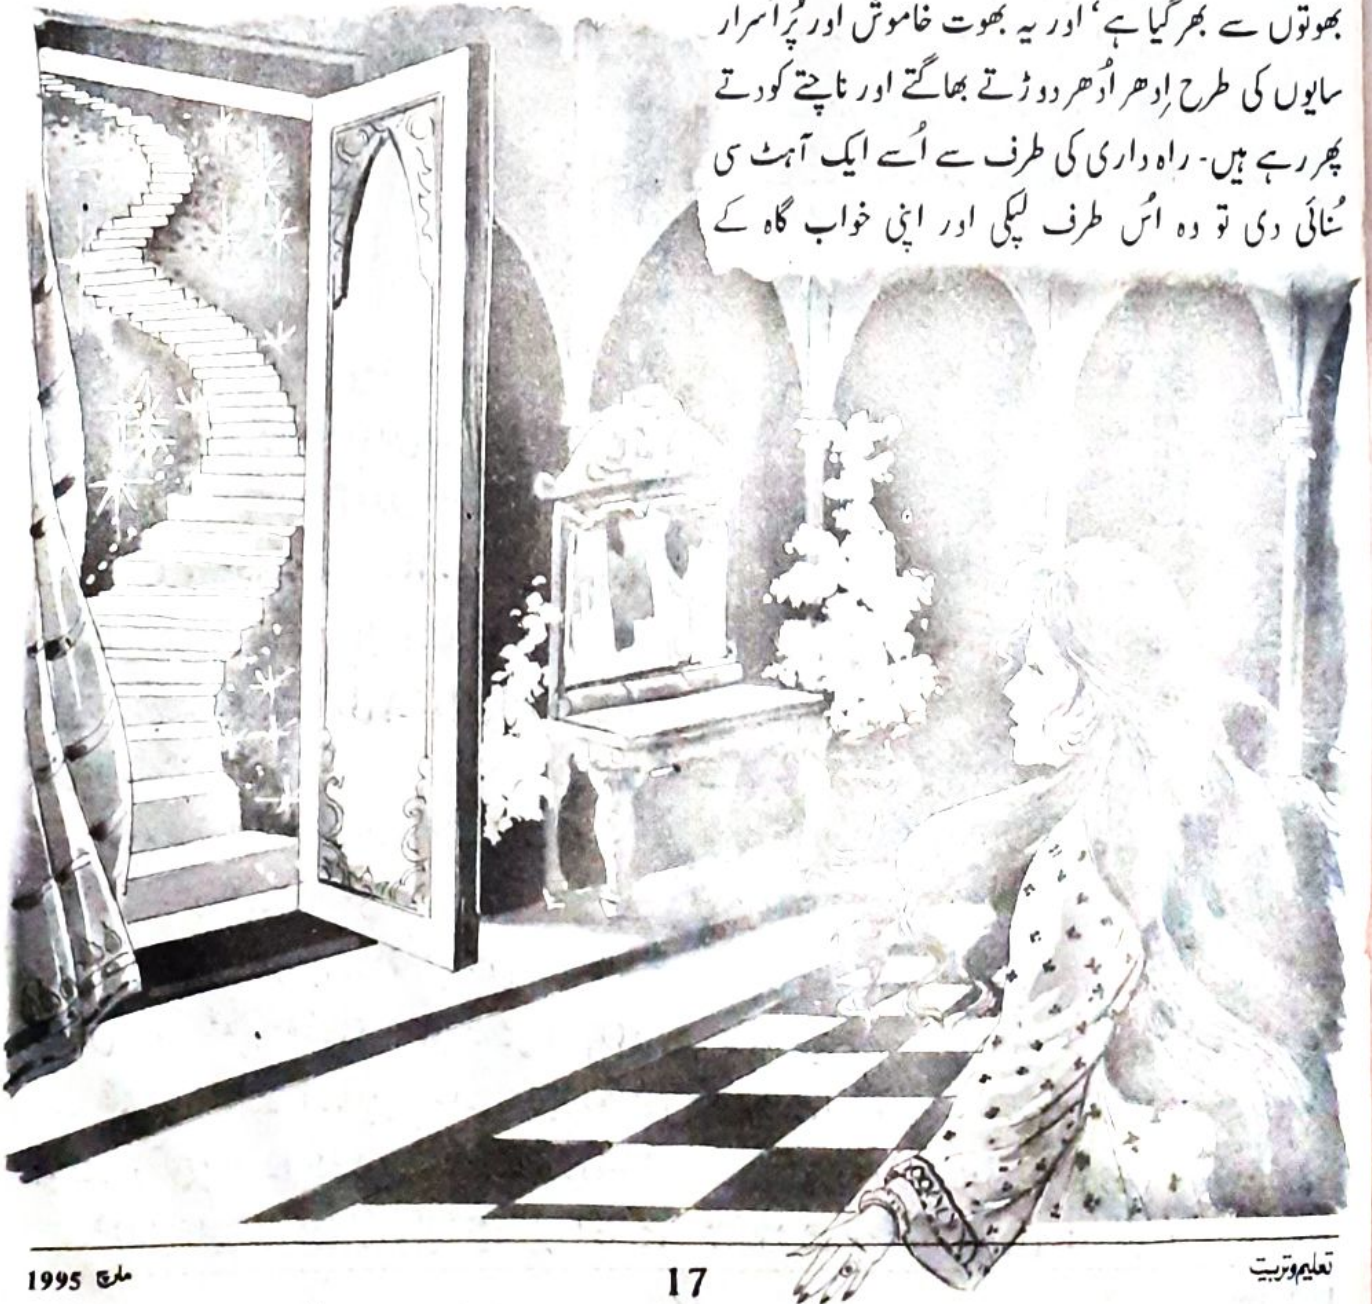 بھوتوں سے بھر گیا ہے، اور یہ بھوت خاموش اور پُراسرار
سایوں کی طرح اِدھر اُدھر دوڑتے بھاگتے اور ناچتے کودتے
پھر رہے ہیں۔ راہ داری کی طرف سے اُسے ایک آہٹ سی
سُنائی دی تو وہ اُس طرف لپکی اور اپنی خواب گاہ کے
تعلیم و تربیت
17
مارچ 1995